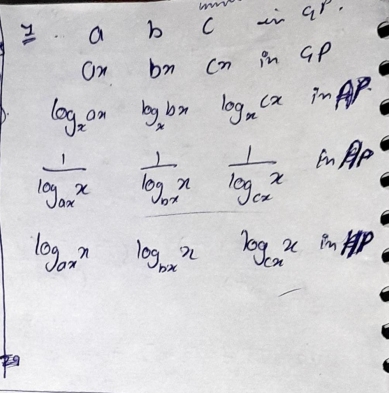 7. a b c in GP.
ax bx cx in GP
log_x ax log_x bx log_x cx in AP.
1/log_ax x 1/log_bx x 1/log_cx x in AP
log_ax x log_bx x log_cx x in HP